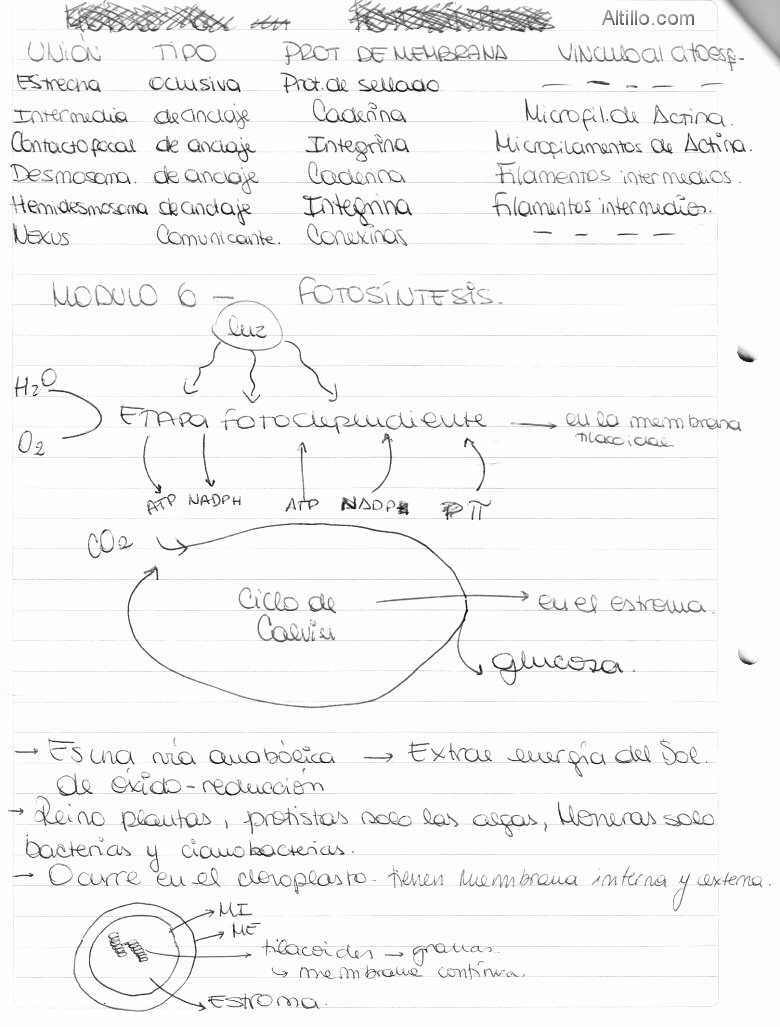 Altillo.com
UNIÓN TIPO PROT DE MEMBRANA VINCULO al citoesq-
Estrecha oclusiva Prot. de sellado - - - - -
Intermedia de anclaje Caderina Microfil. de Actina.
Contacto focal de anclaje Integrina Microfilamentos de Actina.
Desmosoma. de anclaje Caderina Filamentos intermedios.
Hemidesmosoma de anclaje Integrina Filamentos intermedios.
Nexus Comunicante. Conexinas - - - -
MODULO 6 - FOTOSÍNTESIS.
luz
H2O
ETAPA fotodependiente → en la membrana
O2 tilacoidal
ATP NADPH ATP NADP PI
CO2
Ciclo de → en el estroma.
Calvin
glucosa.
→ Es una vía anabólica → Extrae energía del Sol.
de óxido-reducción
→ Reino plantas, protistas solo las algas, Moneras solo
bacterias y cianobacterias.
→ Ocurre en el cloroplasto. tienen membrana interna y externa.
→ MI
→ ME
→ tilacoides → granas.
↳ membrana continua.
→ ESTROMA.